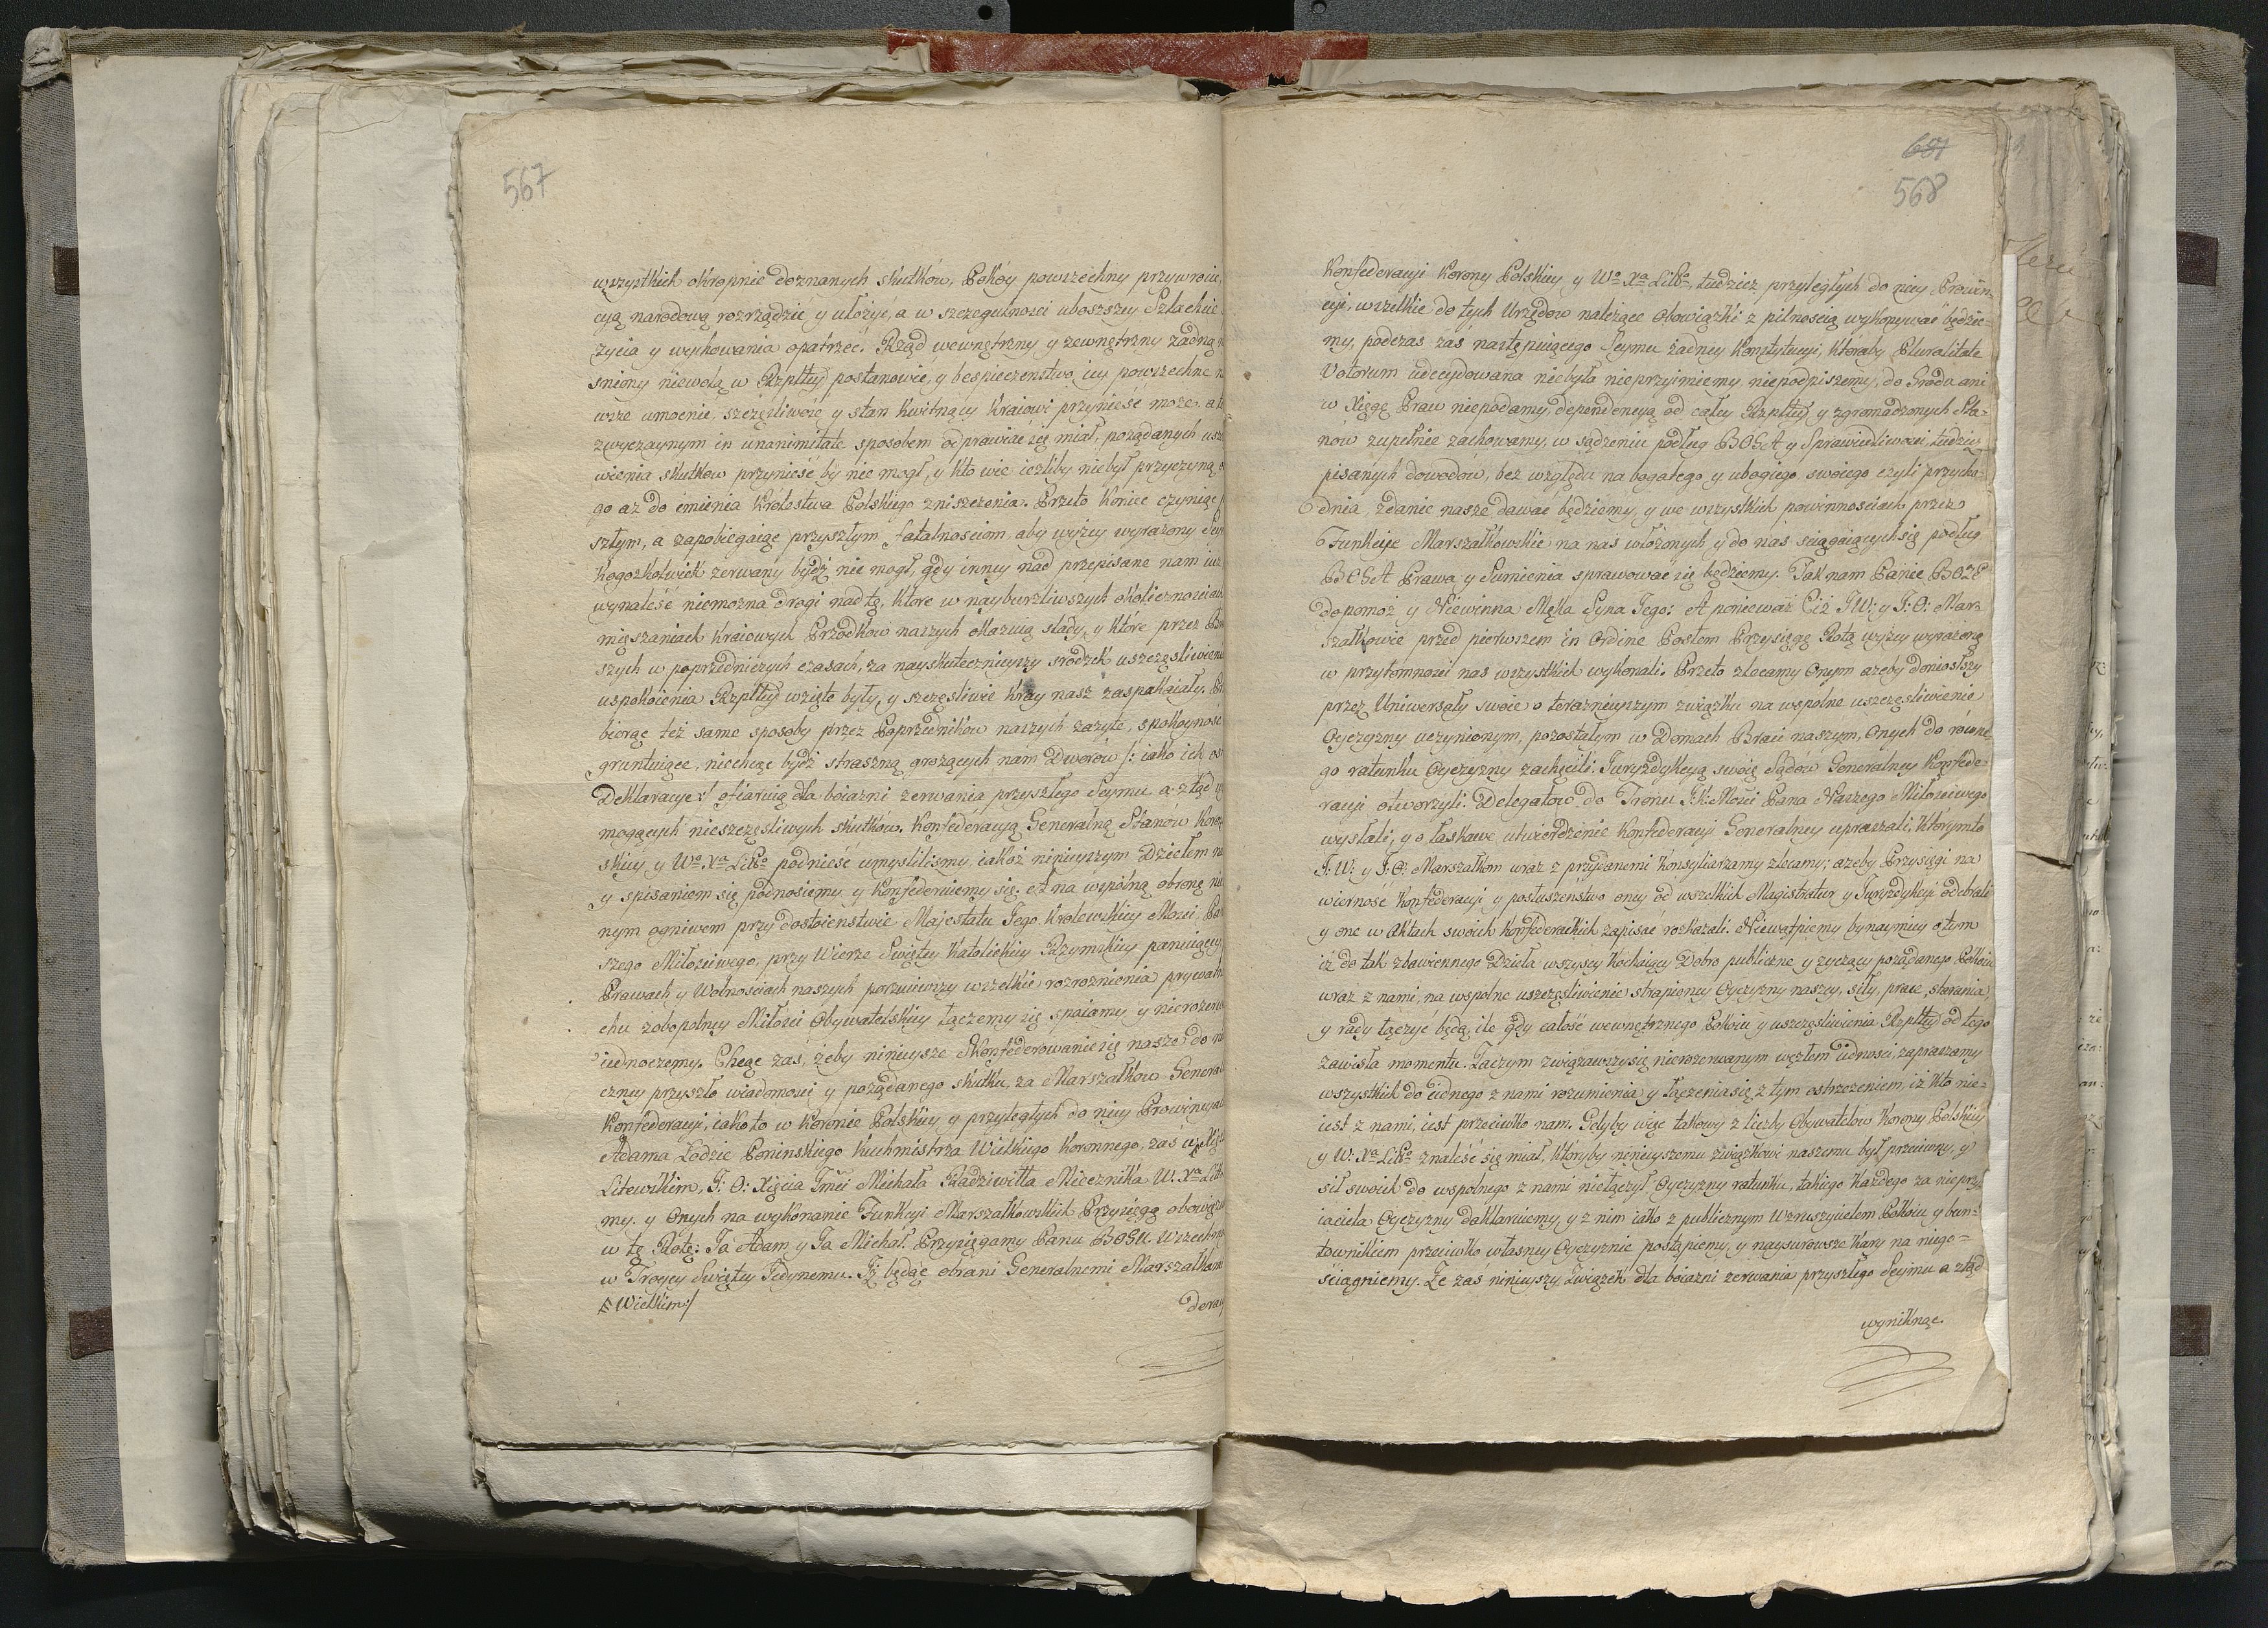 567
wszystkich okropnie doznanych skutków, Pokóy powszechny przywrocić,
cyą narodową rozrządzić y ułożyć, a w szczegulnosci uboszszey Szlachcie
życia y wychowania opatrzeć. Rząd wewnętrzny y zewnętrzny żadną
sniony niewolą w Rzpltey postanowić, y bespieczenstwo iey powszechne
wsze umocnić, szczęśliwość y stan kwitnący Kraiowi przynieść może. a
zwyczaynym in unanimitate sposobem odprawiać się miał, pożądanych
wienia skutkow przynieść by nie mogł, y kto wie ieżliby niebył przyczyną
go aż do imienia Krolestwa Polskiego zniszczenia. Przeto koniec czyniąc
szłym, a zapobiegaiąc przyszłym fatalnosciom, aby wyżey wyrażony
kogożkolwiek zerwany bydź nie mogł, gdy inney nad przepisane nam iuż
wynaleść niemożna drogi nad tę, ktore w nayburzliwszych okolicznosciach
mięszaniach kraiowych Przodkow naszych okazuią slady, y ktore przez
szych w poprzedniczych czasach, za nayskutecznieyszy srodzek uszczęsliwienia
uspokoienia Rzpltey wzięte były, y szczęsliwie Kray nasz zaspakaiały.
biorąc też same sposoby przez Poprzednikow naszych zażyte, spokoyność
gruntuiące, niechcąc bydź straszną grożących nam Dworów /: iako ich
Deklaracye :/ ofiarnią dla boiazni zerwania przyszłego Seymu a ztąd
mogących nieszczęsliwych skutków. Konfederacyą Generalną Stanów
skiey y Wo. Xa Litto podnieść umysliliśmy, iakoż ninieyszym Dziełem
y spisaniem się podnosiemy y Konfederuiemy się. a na wspólną obronę
nym ogniwem przy dostoieństwie Majestatu Jego Krolewskiey Mości,
szego Miłosciwego, przy Wierze Swiętey Katolickiey Rzymskiey panuiącey
Prawach y Wolnosciach naszych porzuciwszy wszelkie rozroznienia
chu żobopolney Miłosci Obywatelskiey łączemy się spaiamy y
iednoczemy. Chcąc zas, żeby ninieysze skonfederowanie się nasze do
czney przyszło wiadomosci y pożądanego skutku, za Marszałkow
Konfederacyi, iako to w Koronie Polskiey y przyległych do niey
Adama Łodzie Ponińskiego Kuchmistrza Wielkiego Koronnego, zaś w
Litewskim, J: O: Xięcia Jmci Michała Radziwiłła Miecznika W. Xa
my. y Onych na wykonanie Funkcyi Marszałkowskich Przysięgą
w tę Rotę: Ja Adam y Ja Michał Przysięgamy Panu BOGU
w Troycy Swiętey Jedynemu. Iż będąc obrani Generalnemi
Wielkim :/
681
568
Konfederacyi Korony Polskiey y Wo Xa Litto, tudzież przyległych do niey Prowin-
cyi, wszelkie do tych Urzędow należące obowiązki z pilnoscią wykonywać będzie-
my, podczas zaś następuiącego Seymu żadney Konstytucyi, ktoraby Pluralitate
Votorum udecydowana niebyła nieprzyimiemy, niepodpiszemy, do Grodu ani
w Xięgę Praw niepodamy, dependencyą od całey Rzpltey y zgromadzonych Sta-
nów zupełnie zachowamy, w sądzeniu podług BOGA y Sprawiedliwosci tudzież
pisanych dowodow, bez względu na bogatego y ubogiego swoiego czyli przycho-
dnia, zdanie nasze dawać będziemy, y we wszystkich powinnosciach przez
Funkcye Marszałkowskie na nas włożonych y do nas sciągaiących się podług
BOGA Prawa y Sumienia sprawować się będziemy. Tak nam Panie BOŻE
dopomoż y Niewinna Męka Syna Jego: A ponieważ Ciż JW: y J: O: Mar-
szałkowie przed pierwszem in Ordine Posłem Przysięgę Rotą wyżey wyrażoną
w przytomnosci nas wszystkich wykonali. Przeto zlecamy Onym ażeby doniosłszy
przez Uniwersały swoie o teraznieyszym związku na wspolne uszczęsliwienie
Oyczyzny uczynionym, pozostałym w Domach Braci naszym, Onych do
go ratunku Oyczyzny zachęcili: Juryzdykcyą swoię Sądow Generalney Konfede-
racyi otworzyli. Delegatow do Tronu J:K:Mości Pana Naszego Miłosciwego
wysłali, y o łaskawe utwierdzenie Konfederacyi Generalney upraszali, Ktorymto
J: W: y J: O: Marszałkom wraz z przydanemi Konsyliarzamy zlecamy; ażeby Przysięgi na
wierność Konfederacyi y posłuszeństwo oney od wszelkich Magistratur y Juryzdykcyi odebrali
y one w Aktach swoich Konfederackich zapisać rozkazali. Niewątpiemy bynaymniey o tym
iż do tak zbawiennego Dzieła wszyscy kochaiący Dobro publiczne y życzący pożądanego Pokoiu
wraz z nami, na wspolne uszczęsliwienie strapioney Oyczyzny naszey, siły, prace, starania,
y rady łączyć będą, ile gdy całość wewnętrznego Pokoiu y uszczęsliwienia Rzpltey od tego
zawisła momentu. Zaczym związawszy się nierozerwanym węzłem iedności, zapraszamy
wszystkich do iednego z nami rozumienia y łączenia się z tym ostrzezeniem, iż kto nie-
iest z nami, iest przeciwko nam. Gdyby więc takowy z liczby Obywatelow Korony Polskiey
y W: Xa Litto znaleść się miał, ktoryby ninieyszemu związkowi naszemu był przeciwny, y
sił swoich do wspolnego z nami niełączył Oyczyzny ratunku, takiego każdego za nieprzy-
iaciela Oyczyzny daklaruiemy, y z nim iako z publicznym Wzruszycielem Pokoiu y bun-
townikiem przeciwko własney Oyczyznie postąpiemy, y naysurowsze kary na niego-
sciągniemy. Że zaś ninieyszy Związek dla boiazni zerwania przyszłego Seymu a ztąd
wyniknąć.